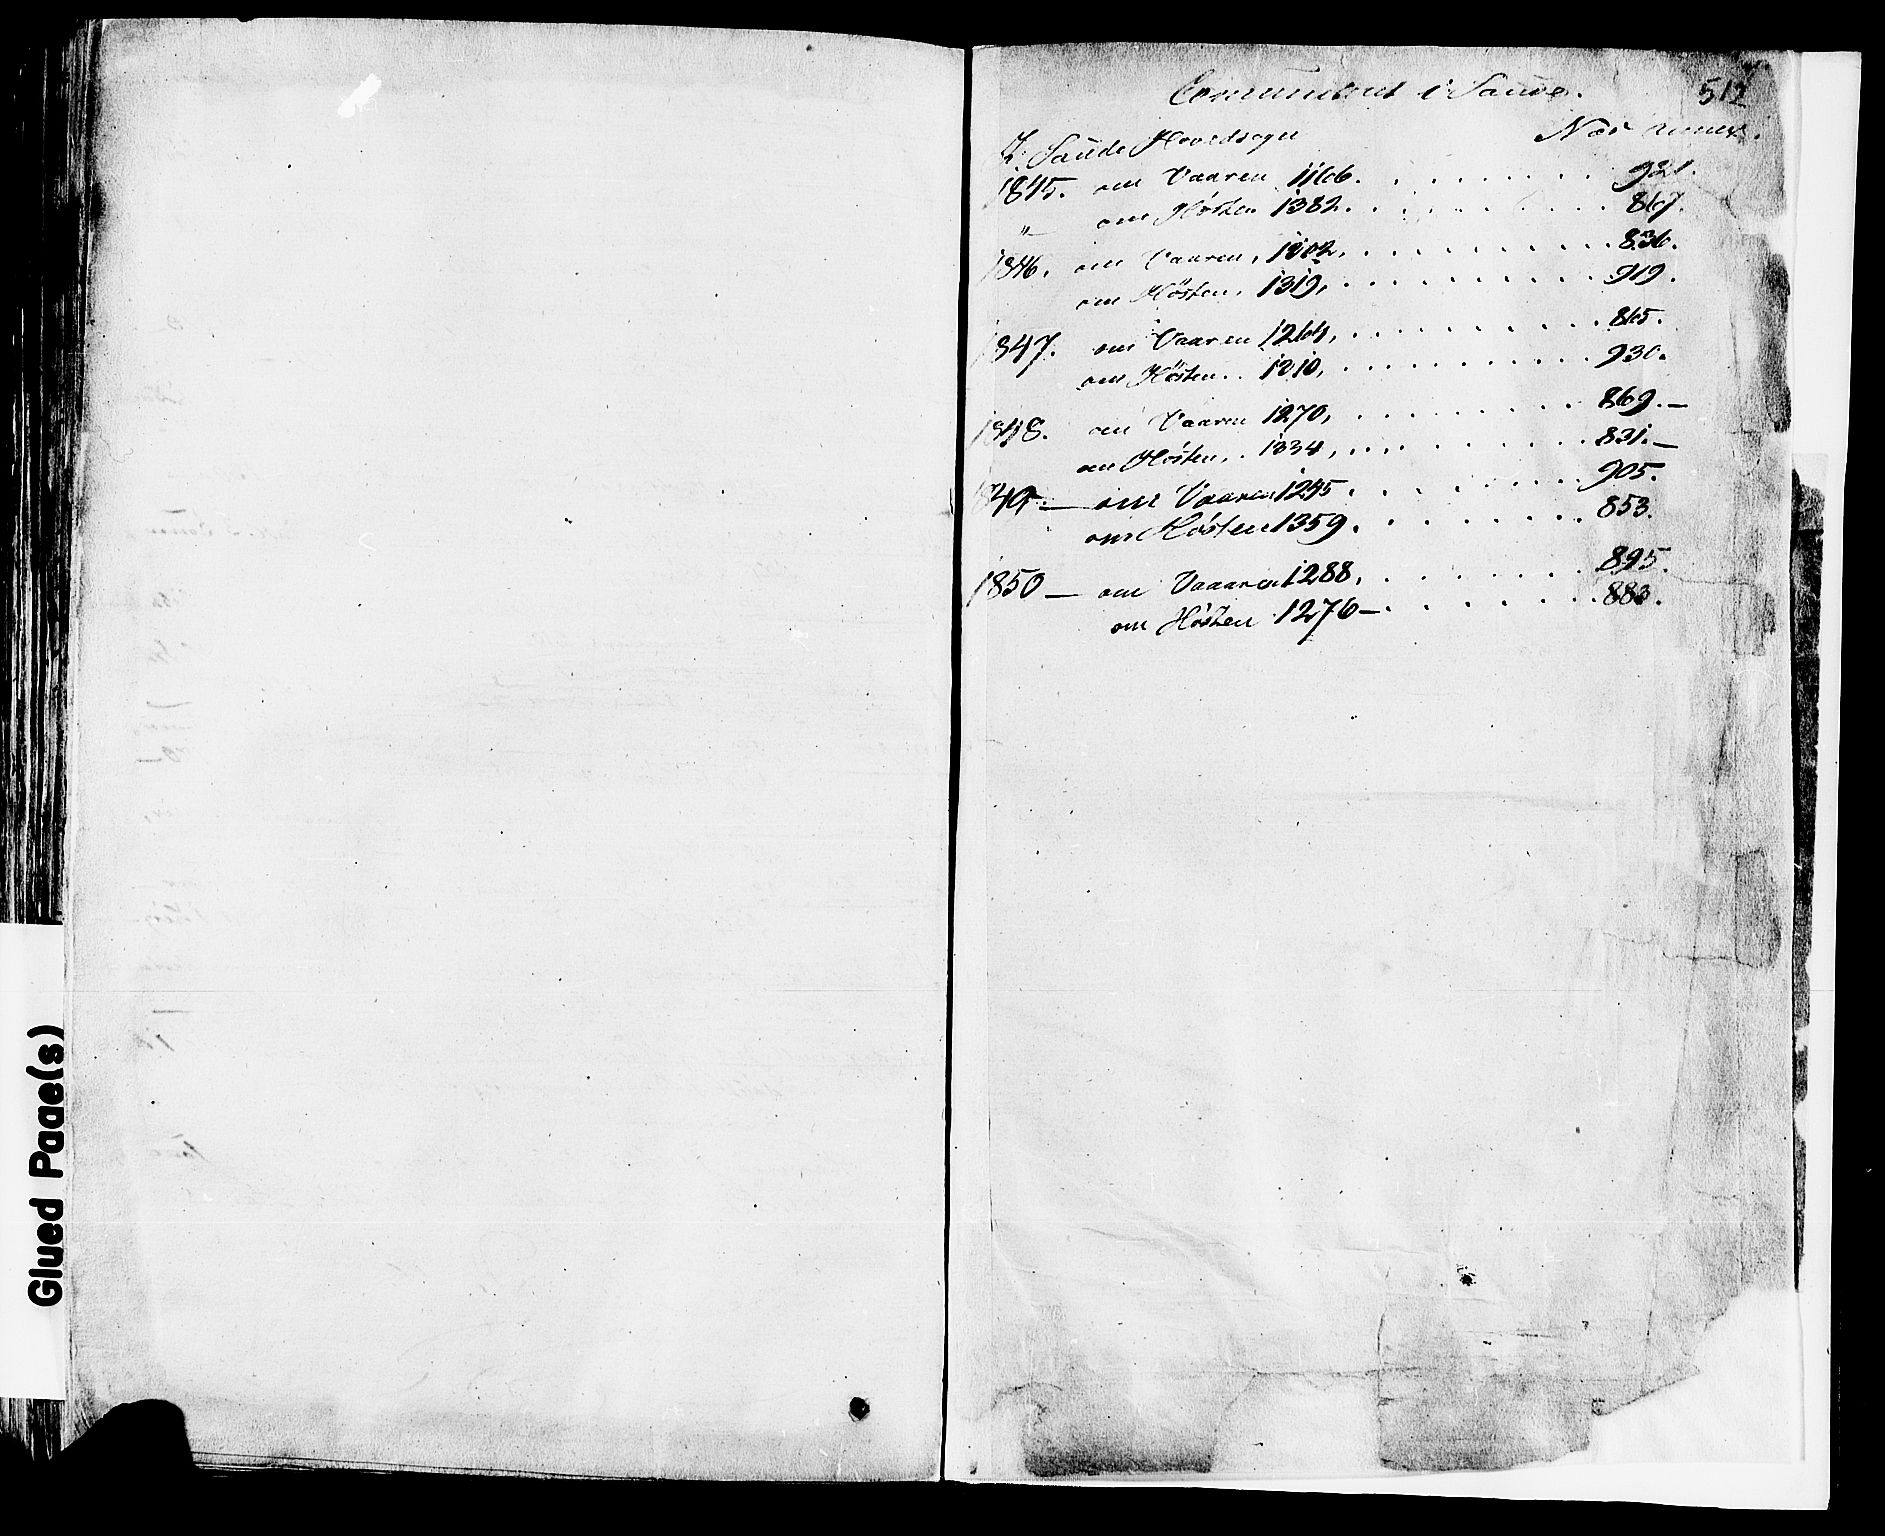 Glued Page(s)
512
Communicant i Saude.
I Saude Hovedsogn
1845. om Vaaren 1166. . . . . . . . 921.
" om Høsten 1382. . . . . . . . 867.
1846. om Vaaren, 1202, . . . . . . . . 836.
om Høsten, 1319, . . . . . . . . 919.
1847. om Vaaren 1264, . . . . . . . . 865.
om Høsten . . 1210, . . . . . . . . 930.
1848. om Vaaren 1270, . . . . . . . . 869. —
om Høsten, . 1334, . . . . . . . . 831. —
1849. — om Vaaren 1245 . . . . . . . 905.
om Høsten 1359. . . . . . . . 853.
1850 — om Vaaaren 1288, . . . . . . . 895.
om Høsten 1276 — . . . . . . . 883.